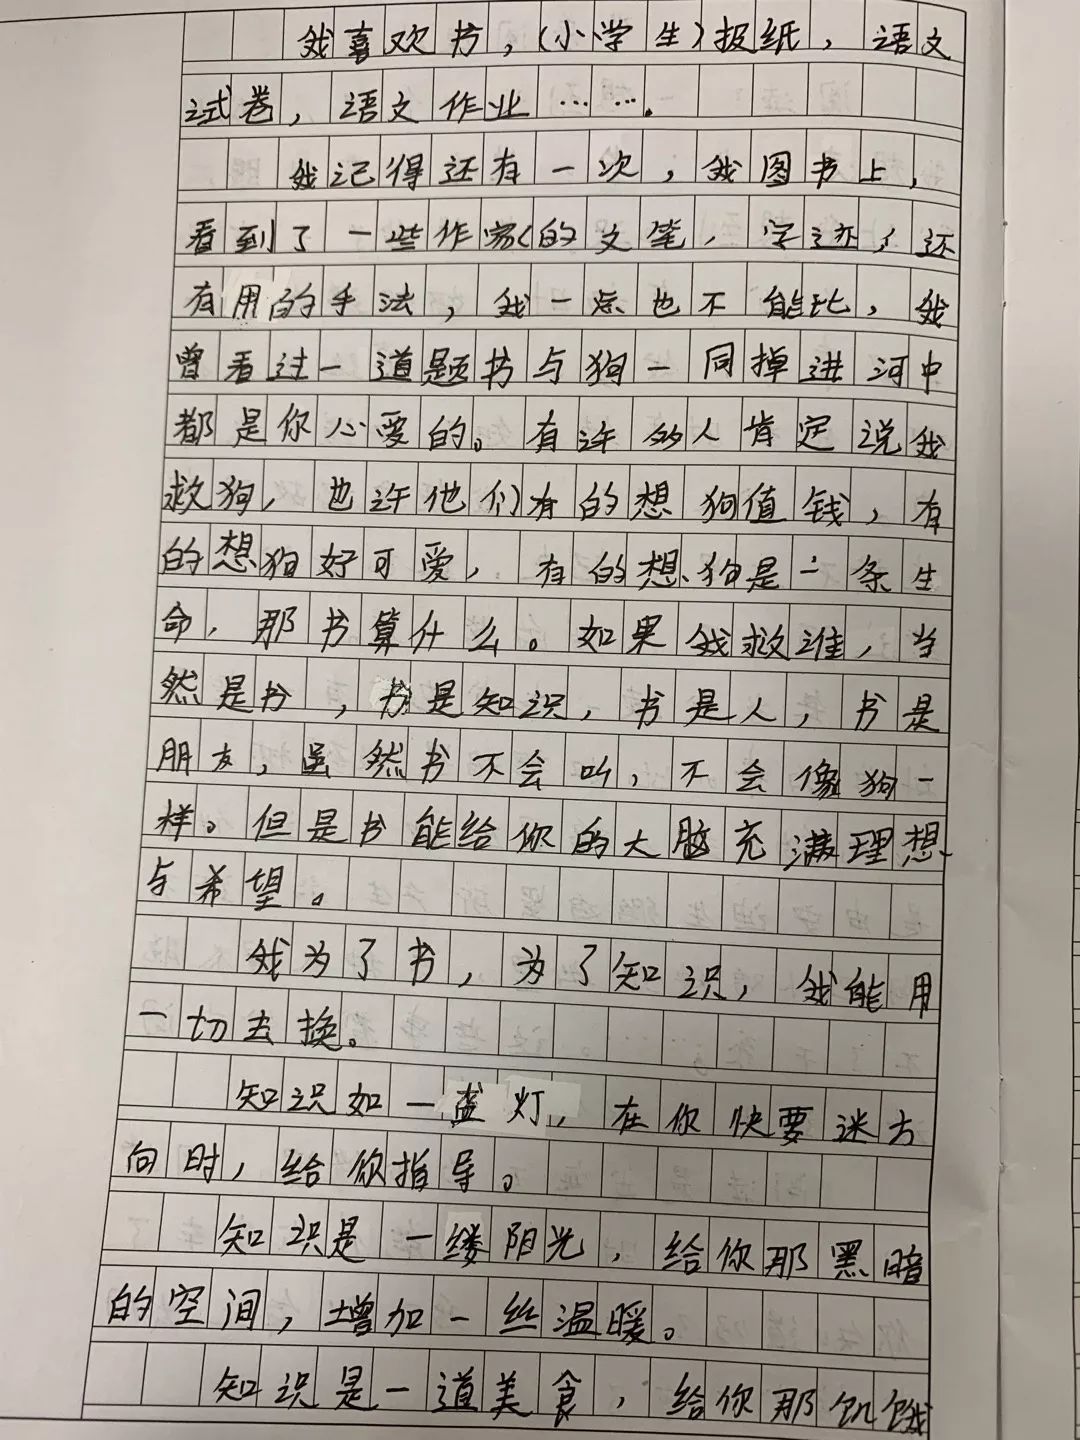 我喜欢书,(小学生)报纸,语文
试卷,语文作业…….
我记得还有一次,我图书上,
看到了一些作家的文笔,字迹,还
有用的手法,我一点也不能比,我
曾看过一道题书与狗一同掉进河中
都是你心爱的。有许多人肯定说我
救狗,也许他们有的想狗值钱,有
的想狗好可爱,有的想狗是一条生
命,那书算什么。如果我救谁,当
然是书,书是知识,书是人,书是
朋友,虽然书不会叫,不会像狗一
样。但是书能给你的大脑充满理想
与希望。
我为了书,为了知识,我能用
一切去换。
知识如一盏灯,在你快要迷方
向时,给你指导。
知识是一缕阳光,给你那黑暗
的空间,增加一丝温暖。
知识是一道美食,给你那饥饿